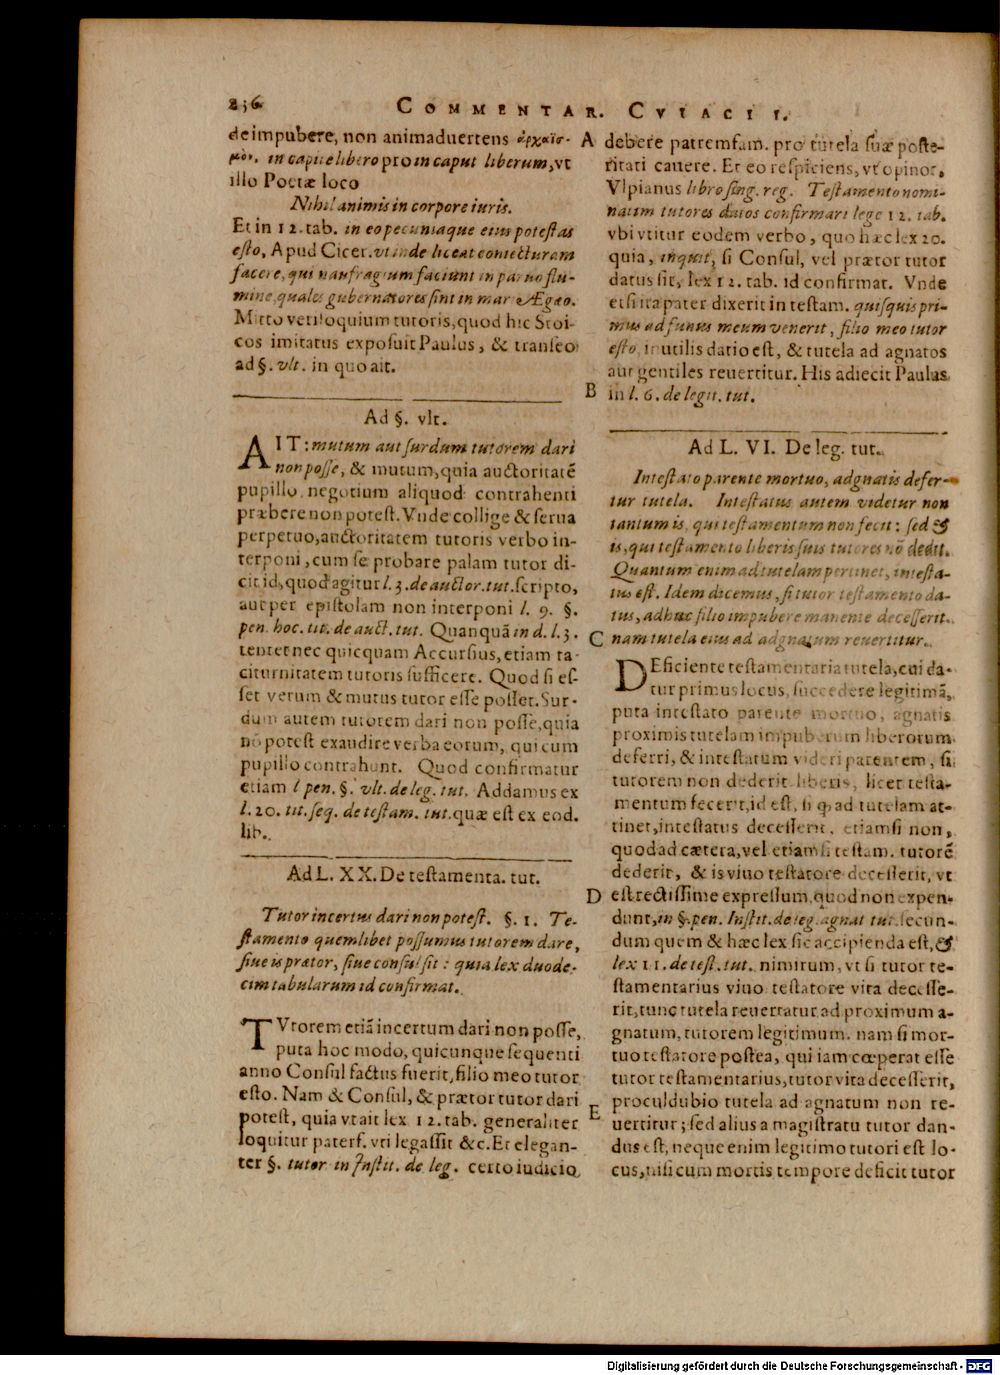 236
COMMENTAR. CVIACII I.
de impubere, non animaduertens ἀρχαϊσ-
μὸν. in capite libero pro in caput liberum, vt
illo Poetæ loco
Nihil animis in corpore iuris.
Et in 12. tab. in eo pecuniaque eius potestas
esto, Apud Cicer. vt inde liceat coniecturam
facere, qui naufragium faciunt in paruo flu-
mine, quales gubernatores sint in mari Ægæo.
Mitto veriloquium tutoris, quod hic Stoi-
cos imitatus exposuit Paulus, & transeo
ad §. vlt. in quo ait.
Ad §. vlt.
AIT: mutum aut surdum tutorem dari
non posse, & mutum, quia auctoritatē
pupillo negotium aliquod contrahenti
præbere non potest. Vnde collige & serua
perpetuo, auctoritatem tutoris verbo in-
terponi, cum se probare palam tutor di-
cit id, quod agitur l. 3. de auctor. tut. scripto,
aut per epistolam non interponi l. 9. §.
pen. hoc. tit. de auct. tut. Quanquā in d. l. 3.
tentet nec quicquam Accursius, etiam ta-
citurnitatem tutoris sufficere. Quod si es-
set verum & mutus tutor esse posset. Sur-
dum autem tutorem dari non posse, quia
nō potest exaudire verba eorum, qui cum
pupillo contrahunt. Quod confirmatur
etiam l pen. §. vlt. de leg. tut. Addamus ex
l. 20. tit. seq. de testam. tut. quæ est ex eod.
lib.
Ad L. XX. De testamenta. tut.
Tutor incertus dari non potest. §. 1. Te-
stamento quemlibet possumus tutorem dare,
siue is prætor, siue consul sit: quia lex duode-
cim tabularum id confirmat.
TVtorem etiā incertum dari non posse,
puta hoc modo, quicunque sequenti
anno Consul factus fuerit, filio meo tutor
esto. Nam & Consul, & prætor tutor dari
potest, quia vt ait lex 12. tab. generaliter
loquitur paterf. vti legassit &c. Et elegan-
ter §. tutor in Instit. de leg. certo iudicio
A debere patremfam. pro tutela suæ poste-
ritati cauere. Et eo respiciens, vt opinor,
Vlpianus libro sing. reg. Testamento nomi-
natim tutores datos confirmari lege 12. tab.
vbi vtitur eodem verbo, quo hæc lex 20.
quia, inquit, si Consul, vel prætor tutor
datus sit, lex 12. tab. id confirmat. Vnde
et si ita pater dixerit in testam. quisquis pri-
mus ad funus meum venerit, filio meo tutor
esto, inutilis datio est, & tutela ad agnatos
aut gentiles reuertitur. His adiecit Paulus
B in l. 6. de legit. tut.
Ad L. VI. De leg. tut.
Intestato parente mortuo, adgnatis defer-
tur tutela. Intestatus autem videtur non
tantum is, qui testamentum non fecit: sed &
is, qui testamento liberis suis tutores nō dedit.
Quantum enim ad tutelam pertinet, intesta-
tus est. Idem dicemus, si tutor testamento da-
tus, adhuc filio impubere manente decesserit.
C nam tutela eius ad adgnatum reuertitur.
DEficiente testamentaria tutela, cui da-
tur primus locus, succedere legitimā,
puta intestato parente mortuo, agnatis
proximis tutelam impuberum liberorum
deferri, & intestatum videri parentem, si
tutorem non dederit liberis, licet testa-
mentum fecerit, id est, si q̃ ad tutelam at-
tinet, intestatus decesserit, etiamsi non,
quod ad cætera, vel etiamsi testam. tutorē
dederit, & is viuo testatore decesserit, vt
D est rectissime expressum, quod non expen-
dunt, in §. pen. Instit. de leg. agnat tut. secun-
dum quem & hæc lex sic accipienda est, &
lex 11. de test. tut. nimirum, vt si tutor te-
stamentarius viuo testatore vita decesse-
rit, tunc tutela reuertatur ad proximum a-
gnatum, tutorem legitimum. nam si mor-
tuo testatore postea, qui iam cœperat esse
tutor testamentarius, tutor vita decesserit,
proculdubio tutela ad agnatum non re-
E uertitur; sed alius a magistratu tutor dan-
dus est, neque enim legitimo tutori est lo-
cus, nisi cum mortis tempore deficit tutor
Digitalisierung gefördert durch die Deutsche Forschungsgemeinschaft - DFG